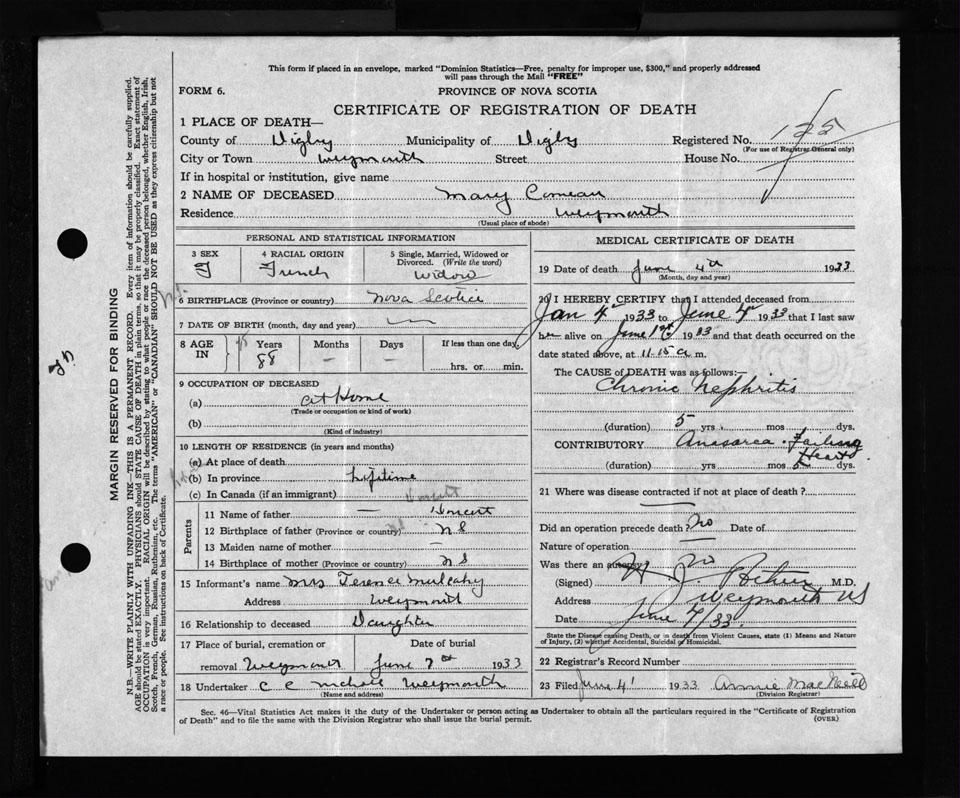 This form if placed in an envelope, marked "Dominion Statistics—Free, penalty for improper use, $300," and properly addressed
will pass through the Mail "FREE"
FORM 6. PROVINCE OF NOVA SCOTIA
CERTIFICATE OF REGISTRATION OF DEATH
1 PLACE OF DEATH—
County of Digby Municipality of Digby Registered No. 125
(For use of Registrar General only)
City or Town Weymouth Street House No.
If in hospital or institution, give name
2 NAME OF DECEASED Mary Comeau
Residence Weymouth
(Usual place of abode)
PERSONAL AND STATISTICAL INFORMATION
3 SEX 4 RACIAL ORIGIN 5 Single, Married, Widowed or Divorced. (Write the word)
F French Widow
6 BIRTHPLACE (Province or country) Nova Scotia
7 DATE OF BIRTH (month, day and year) —
8 AGE IN Years Months Days If less than one day,
88 — — hrs. or min.
9 OCCUPATION OF DECEASED
(a) At Home
(Trade or occupation or kind of work)
(b)
(Kind of industry)
10 LENGTH OF RESIDENCE (in years and months)
(a) At place of death
(b) In province Lifetime
(c) In Canada (if an immigrant)
Parents
11 Name of father —
12 Birthplace of father (Province or country) N S
13 Maiden name of mother —
14 Birthplace of mother (Province or country) N S
15 Informant's name Mrs Terence Mulcahy
Address Weymouth
16 Relationship to deceased Daughter
17 Place of burial, cremation or Date of burial
removal Weymouth June 7th 1933
18 Undertaker C C Nichols Weymouth
(Name and address)
MEDICAL CERTIFICATE OF DEATH
19 Date of death June 4th 1933
(Month, day and year)
20 I HEREBY CERTIFY that I attended deceased from
Jan 4 1933 to June 4 1933 that I last saw
her alive on June 1st 1933 and that death occurred on the
date stated above, at 11-15 a m.
The CAUSE of DEATH was as follows:—
Chronic Nephritis
(duration) 5 yrs. mos. dys.
CONTRIBUTORY Anasarca. Failing
Heart
(duration) yrs mos dys.
21 Where was disease contracted if not at place of death?
Did an operation precede death? No Date of
Nature of operation —
Was there an autopsy? No
(Signed) M.D.
Address Weymouth NS
Date June 4/33.
State the Disease causing Death, or in death from Violent Causes, state (1) Means and Nature
of Injury, (2) whether Accidental, Suicidal or Homicidal.
22 Registrar's Record Number
23 Filed June 4 1933 Annie MacNeill
(Division Registrar)
Sec. 46—Vital Statistics Act makes it the duty of the Undertaker or person acting as Undertaker to obtain all the particulars required in the "Certificate of Registration
of Death" and to file the same with the Division Registrar who shall issue the burial permit. (OVER)
MARGIN RESERVED FOR BINDING
N.B.—WRITE PLAINLY WITH UNFADING INK—THIS IS A PERMANENT RECORD. Every item of information should be carefully supplied.
AGE should be stated EXACTLY. PHYSICIANS should STATE CAUSE OF DEATH in plain terms, so that it may be properly classified. Exact statement of
OCCUPATION is very important. RACIAL ORIGIN will be described by stating to what people or race the deceased person belonged, whether English, Irish,
Scotch, French, German, Russian, Ruthenian, etc. The terms "AMERICAN" or "CANADIAN" SHOULD NOT BE USED as they express citizenship but not
a race or people. See instructions on back of Certificate.